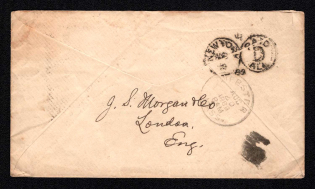 NEW YORK
PAID
D
ALL
J. S. Morgan & Co
London,
Eng.